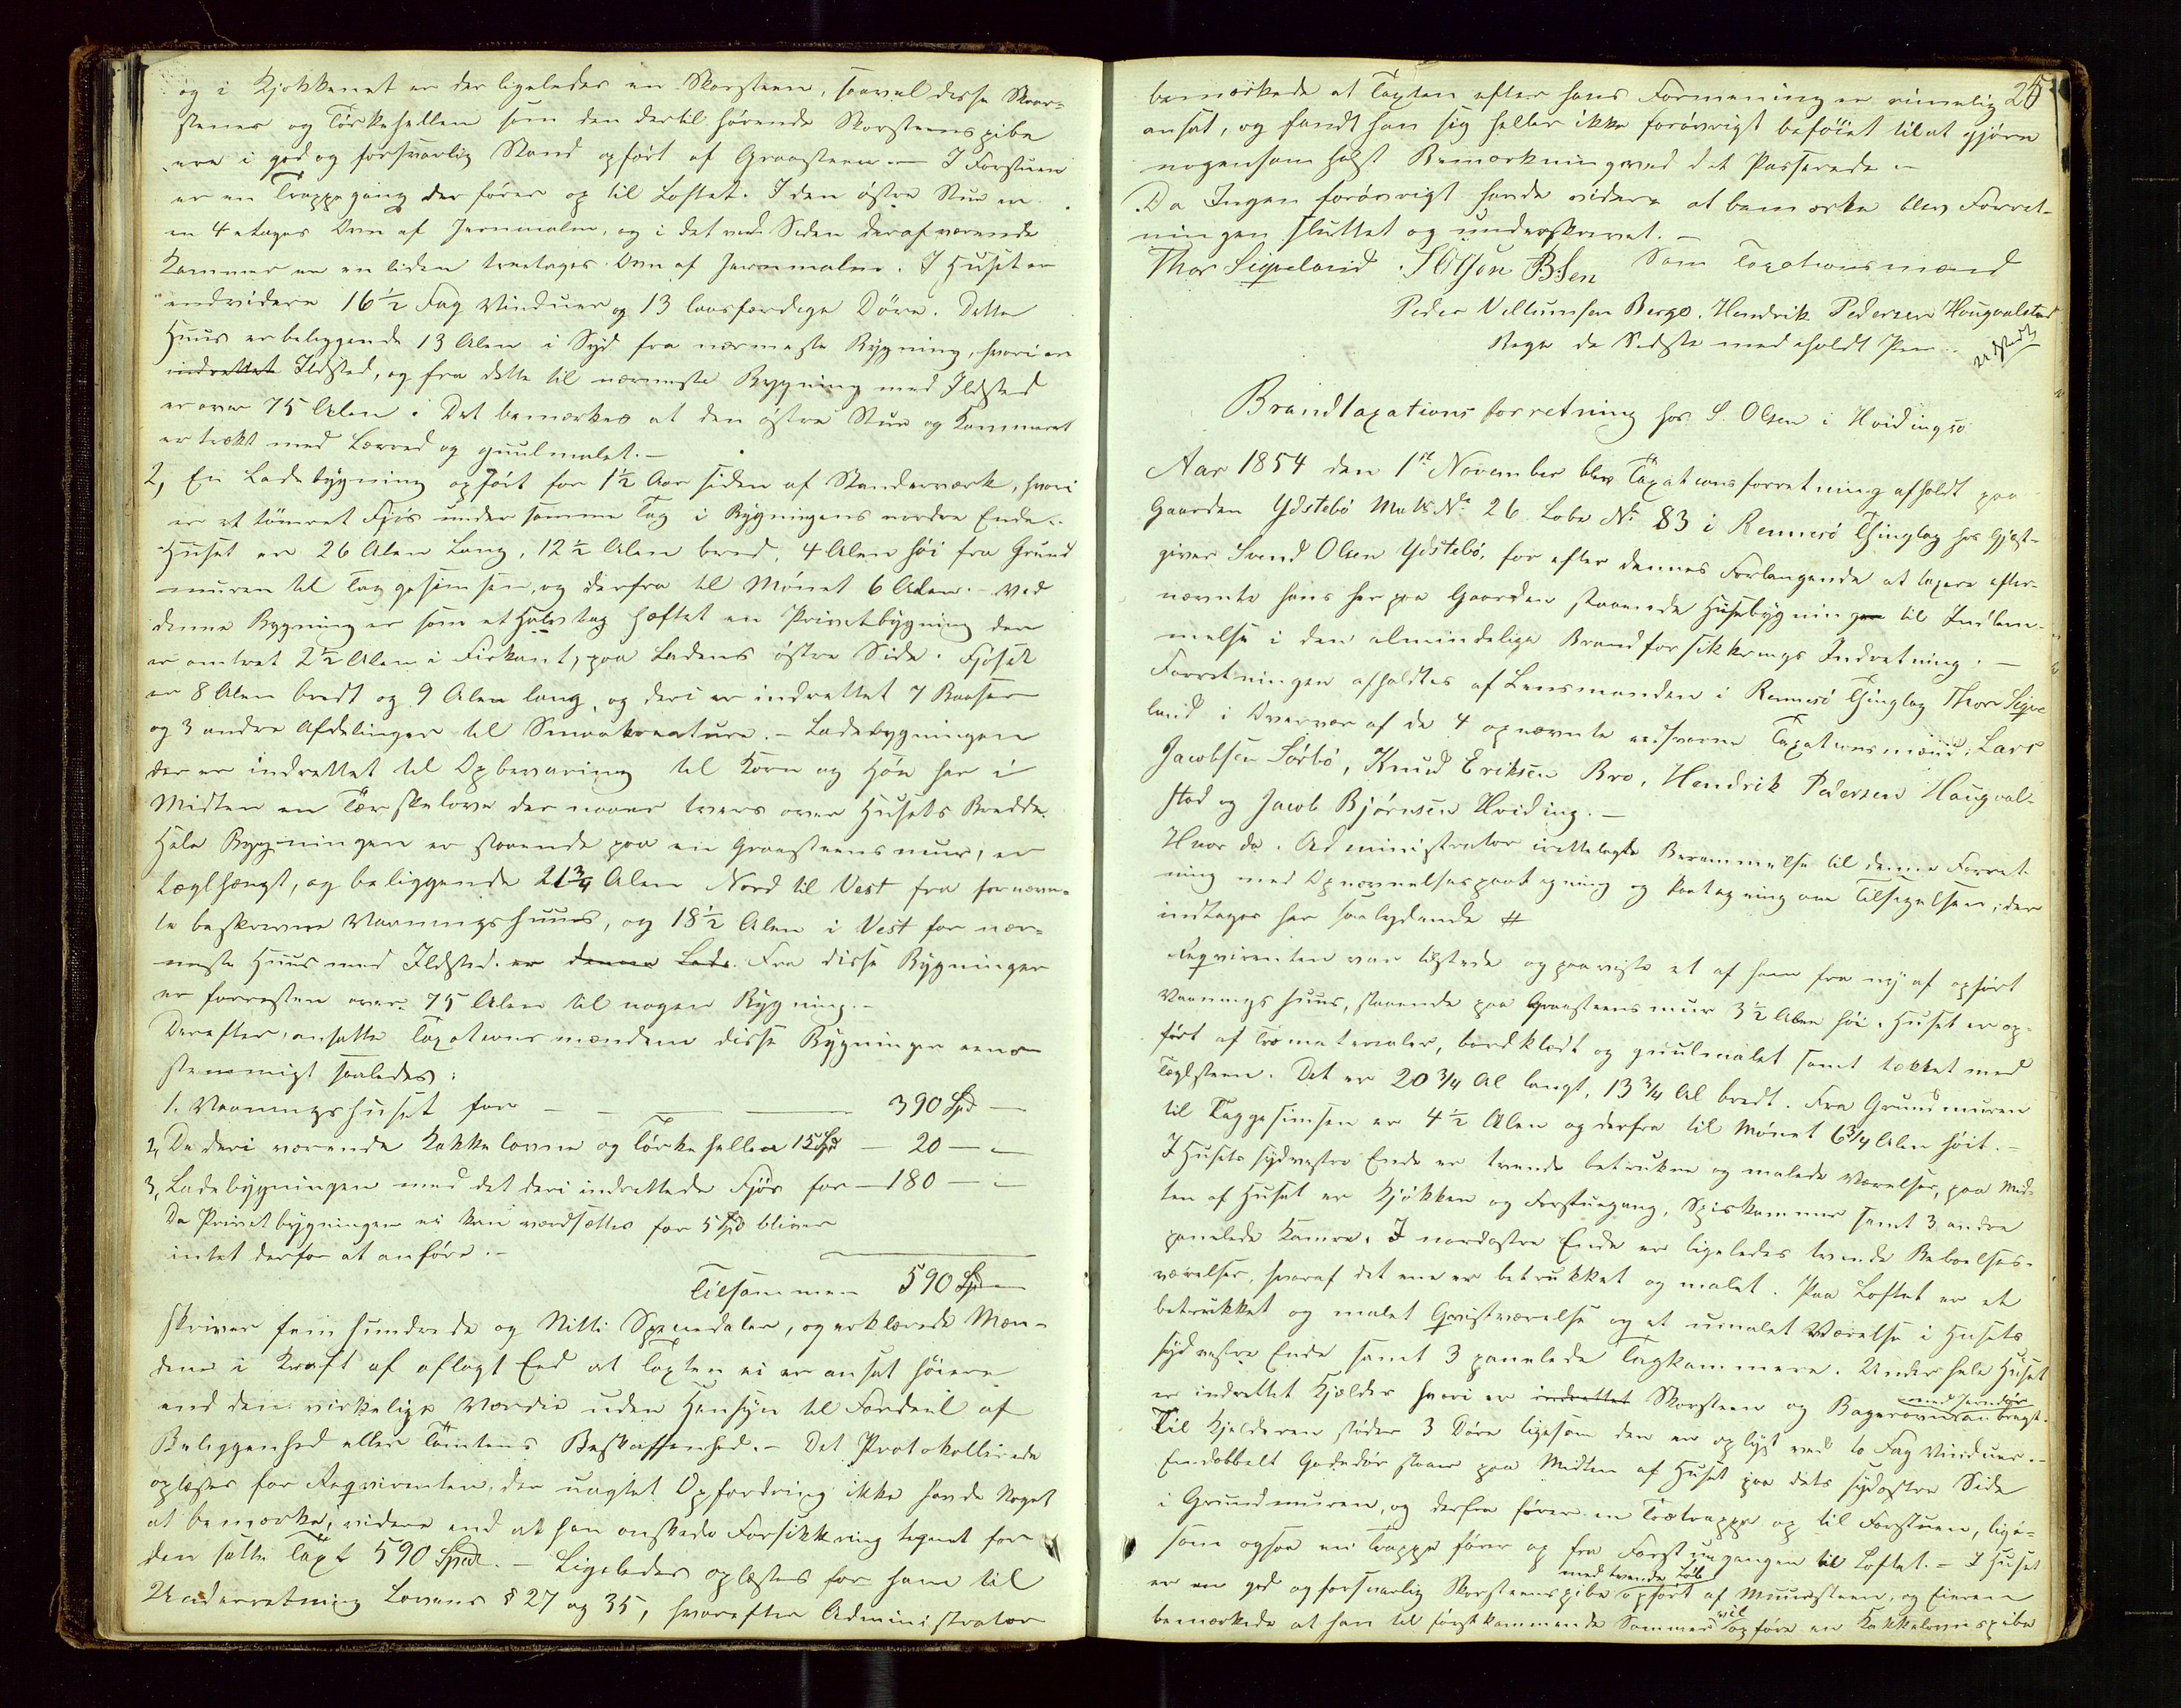 og i Kjøkkenet er der ligeledes en Skorsteen, saavel disse Skor-
stener og Tørkehellen som den dertil hørende Skorsteenspibe
ere i god og forsvarlig Stand opført af Graasteen. — I Forstuen
er en Trappegang der fører op til Loftet. I den østre Stue er
en 4 etages Ovn af Jernmalm, og i det ved Siden deraf værende
Kammer er en liden treetages Ovn af Jernmalm. I Huset er
endvidere 16½ Fag Vinduer og 13 laasfærdige Døre. Dette
Huus er beliggende 13 Alen i Syd fra nærmeste Bygning, hvori er
indrettet Ildsted, og fra dette til nærmeste Bygning med Ildsted
er over 75 Alen. Det bemærkes at den østre Stue og Kammeret
er trækt med Lærred og guulmalet. —
2, En Ladebygning opført for 1½ Aar siden af Stenderværk, hvori
er et tømret Fjøs under samme Tag i Bygningens nordre Ende.
Huset er 26 Alen Lang, 12½ Alen bred, 4 Alen høi fra Grund
muren til Taggesimsen, og derfra til Mønet 6 Alen. Ved
denne Bygning er som et Halvtag hæftet en Privetbygning der
er omtret 2½ Alen i Firkant, paa Ladens østre Side. Fjøset
er 8 Alen bredt og 9 Alen lang, og deri er indrettet 7 Baaser
og 3 andre Afdelinger til Smaakreature. — Ladebygningen
der er indrettet til Opbevaring til Korn og Høe har i
Midten en Tærskelove der naaer tvers over Husets Bredde.
Hele Bygningen er staaende paa en Graasteensmuur, er
tæglhængt, og beliggende 21¾ Alen Nord til Vest fra fornævn-
te beskrevne Vaaningshuus, og 18½ Alen i Vest for nær-
meste Huus med Ildsted. er denne Lade. Fra disse Bygninger
er forresten over 75 Alen til nogen Bygning. —
Derefter ansatte Taxationsmændene disse Bygninger eens
stemmigt saaledes:
1. Vaaningshuset for — — — 390 Spd —
2, De deri værende Kakkelovne og Tørkehellen 15 Spd — 20 — „
3, Ladebygningen med det deri indrettede Fjøs for — 180 — „
Da Privetbygningen ei kan værdsættes for 5 Spd bliver
intet derfor at anføre. —
Tilsammen 590 Spd —
skriver fem hundrede og Nitti Speciedaler, og erklærede Mæn-
dene i Kraft af aflagt Eed at Taxten ei er ansat høiere
end den virkelige Værdie uden Hensyn til Fordeel af
Beliggenhed eller Tomtens Beskaffenhed. — Det Protokollerede
oplæstes for Reqvirenten, der uagtet Opfordring ikke havde Noget
at bemærke, videre end at han ønskede Forsikkring tegnet for
den satte Taxt 590 Spd. — Ligeledes oplæstes for ham til
Underretning Lovens § 27 og 35, hvorefter Administrator
25
bemærkede at Taxten efter hans Formening er rimelig
ansat, og fandt han sig heller ikke forøvrigt beføiet til at gjøre
nogensomhelst Bemærkning ved det Passerede —
Da Ingen forøvrigt havde videre at bemærke blev Forret-
ningen sluttet og underskrevet. —
Thor Sigveland. Som Taxationsmænd
Peder Villumsen Berge. Hendrik Pedersen Hougvalstad
Begge de Sidste med iholdt Pen
Brandtaxationsforretning hos S. Olsen i Hvidingsø
Aar 1854 den 1ste November blev Taxationsforretning afholdt paa
Gaarden Ydstebø Matr No 26 Løbe No 83 i Rennesø Thinglag hos Gjæst-
giver Svend Olsen Ydstebø, for efter dennes Forlangende at taxere efter-
nævnte hans her paa Gaarden staaende Husebygninger til Indlem-
melse i den almindelige Brandforsikkrings Indretning. —
Forretningen afholdtes af Lensmanden i Rennesø Thinglag Thor Sigve
land i Overvær af de 4 opnævnte edsvorne Taxationsmænd, Lars
Jacobsen Sørbø, Knud Eriksen Bro, Hendrik Pedersen Hougval-
stad og Jacob Bjørnsen Hviding. —
Hvor da. Administrator irettelagte Berammelse til denne Forret-
ning med Opnævnelsespaategning og Paategning om Tilsigelsen, der
indtages her saalydende #
Reqvirenten var tilstede og paaviste et af ham fra ny af opført
Vaaningshuus, staaende paa Graasteensmuur 3½ Alen høi. Huset er op-
ført af Træmaterialer, bordklædt og guulmalet samt tækket med
Taglsteen. Det er 20¾ Al langt, 13¾ Al bredt. Fra Grundmuren
til Taggesimsen er 4½ Alen og derfra til Mønet 6¾ Alen høit. —
I Husets sydvestre Ende er tvende betrukne og malede Værelser, paa Mid-
ten af Huset er Kjøkken og Forstuegang, Spiskammer samt 3 andre
panelede Kamre. I nordøstre Ende er ligeledes tvende Beboelses-
værelser, hvoraf det ene er betrukket og malet. Paa Loftet er et
betrukket og malet Qvistværelse og et umalet Værelse i Husets
sydvestre Ende samt 3 panelede Tagkammere. Under hele Huset
er indrettet Kjælder hvori er indrettet Skorsteen og Bagerovn med Jerndør anbragt.
Til Kjelderen støder 3 Døre ligesom den er oplyst ved to Fag Vinduer. —
En dobbelt Gadedør staaer paa Midten af Huset paa dets sydøstre Side
i Grundmuren, og derfra fører en Trætrappe op til Forstuen, lige-
som ogsaa en Trappe fører op fra Forstuegangen til Loftet. — I Huset
er en god og forsvarlig Skorsteenspibe med tvende Løb opført af Muursteen, og Eieren
bemærkede at han til førstkommende Sommer vil opføre en Kakkelovnspibe